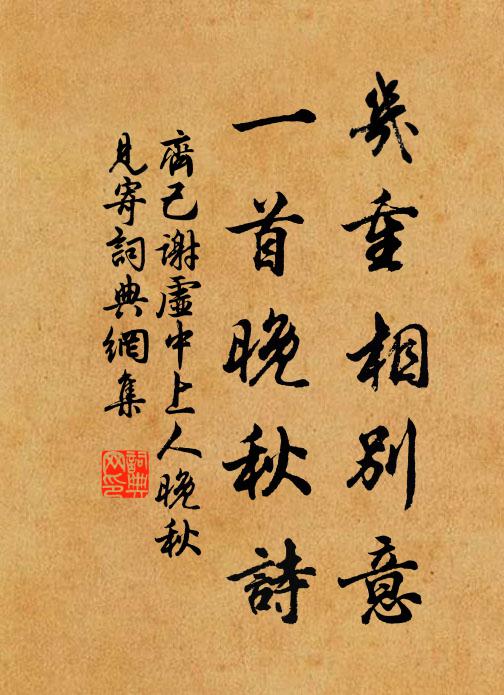 幾重相別意
一首晚秋詩
齊己謝虛中上人晚秋
見寄詞典網集
詞典
网印